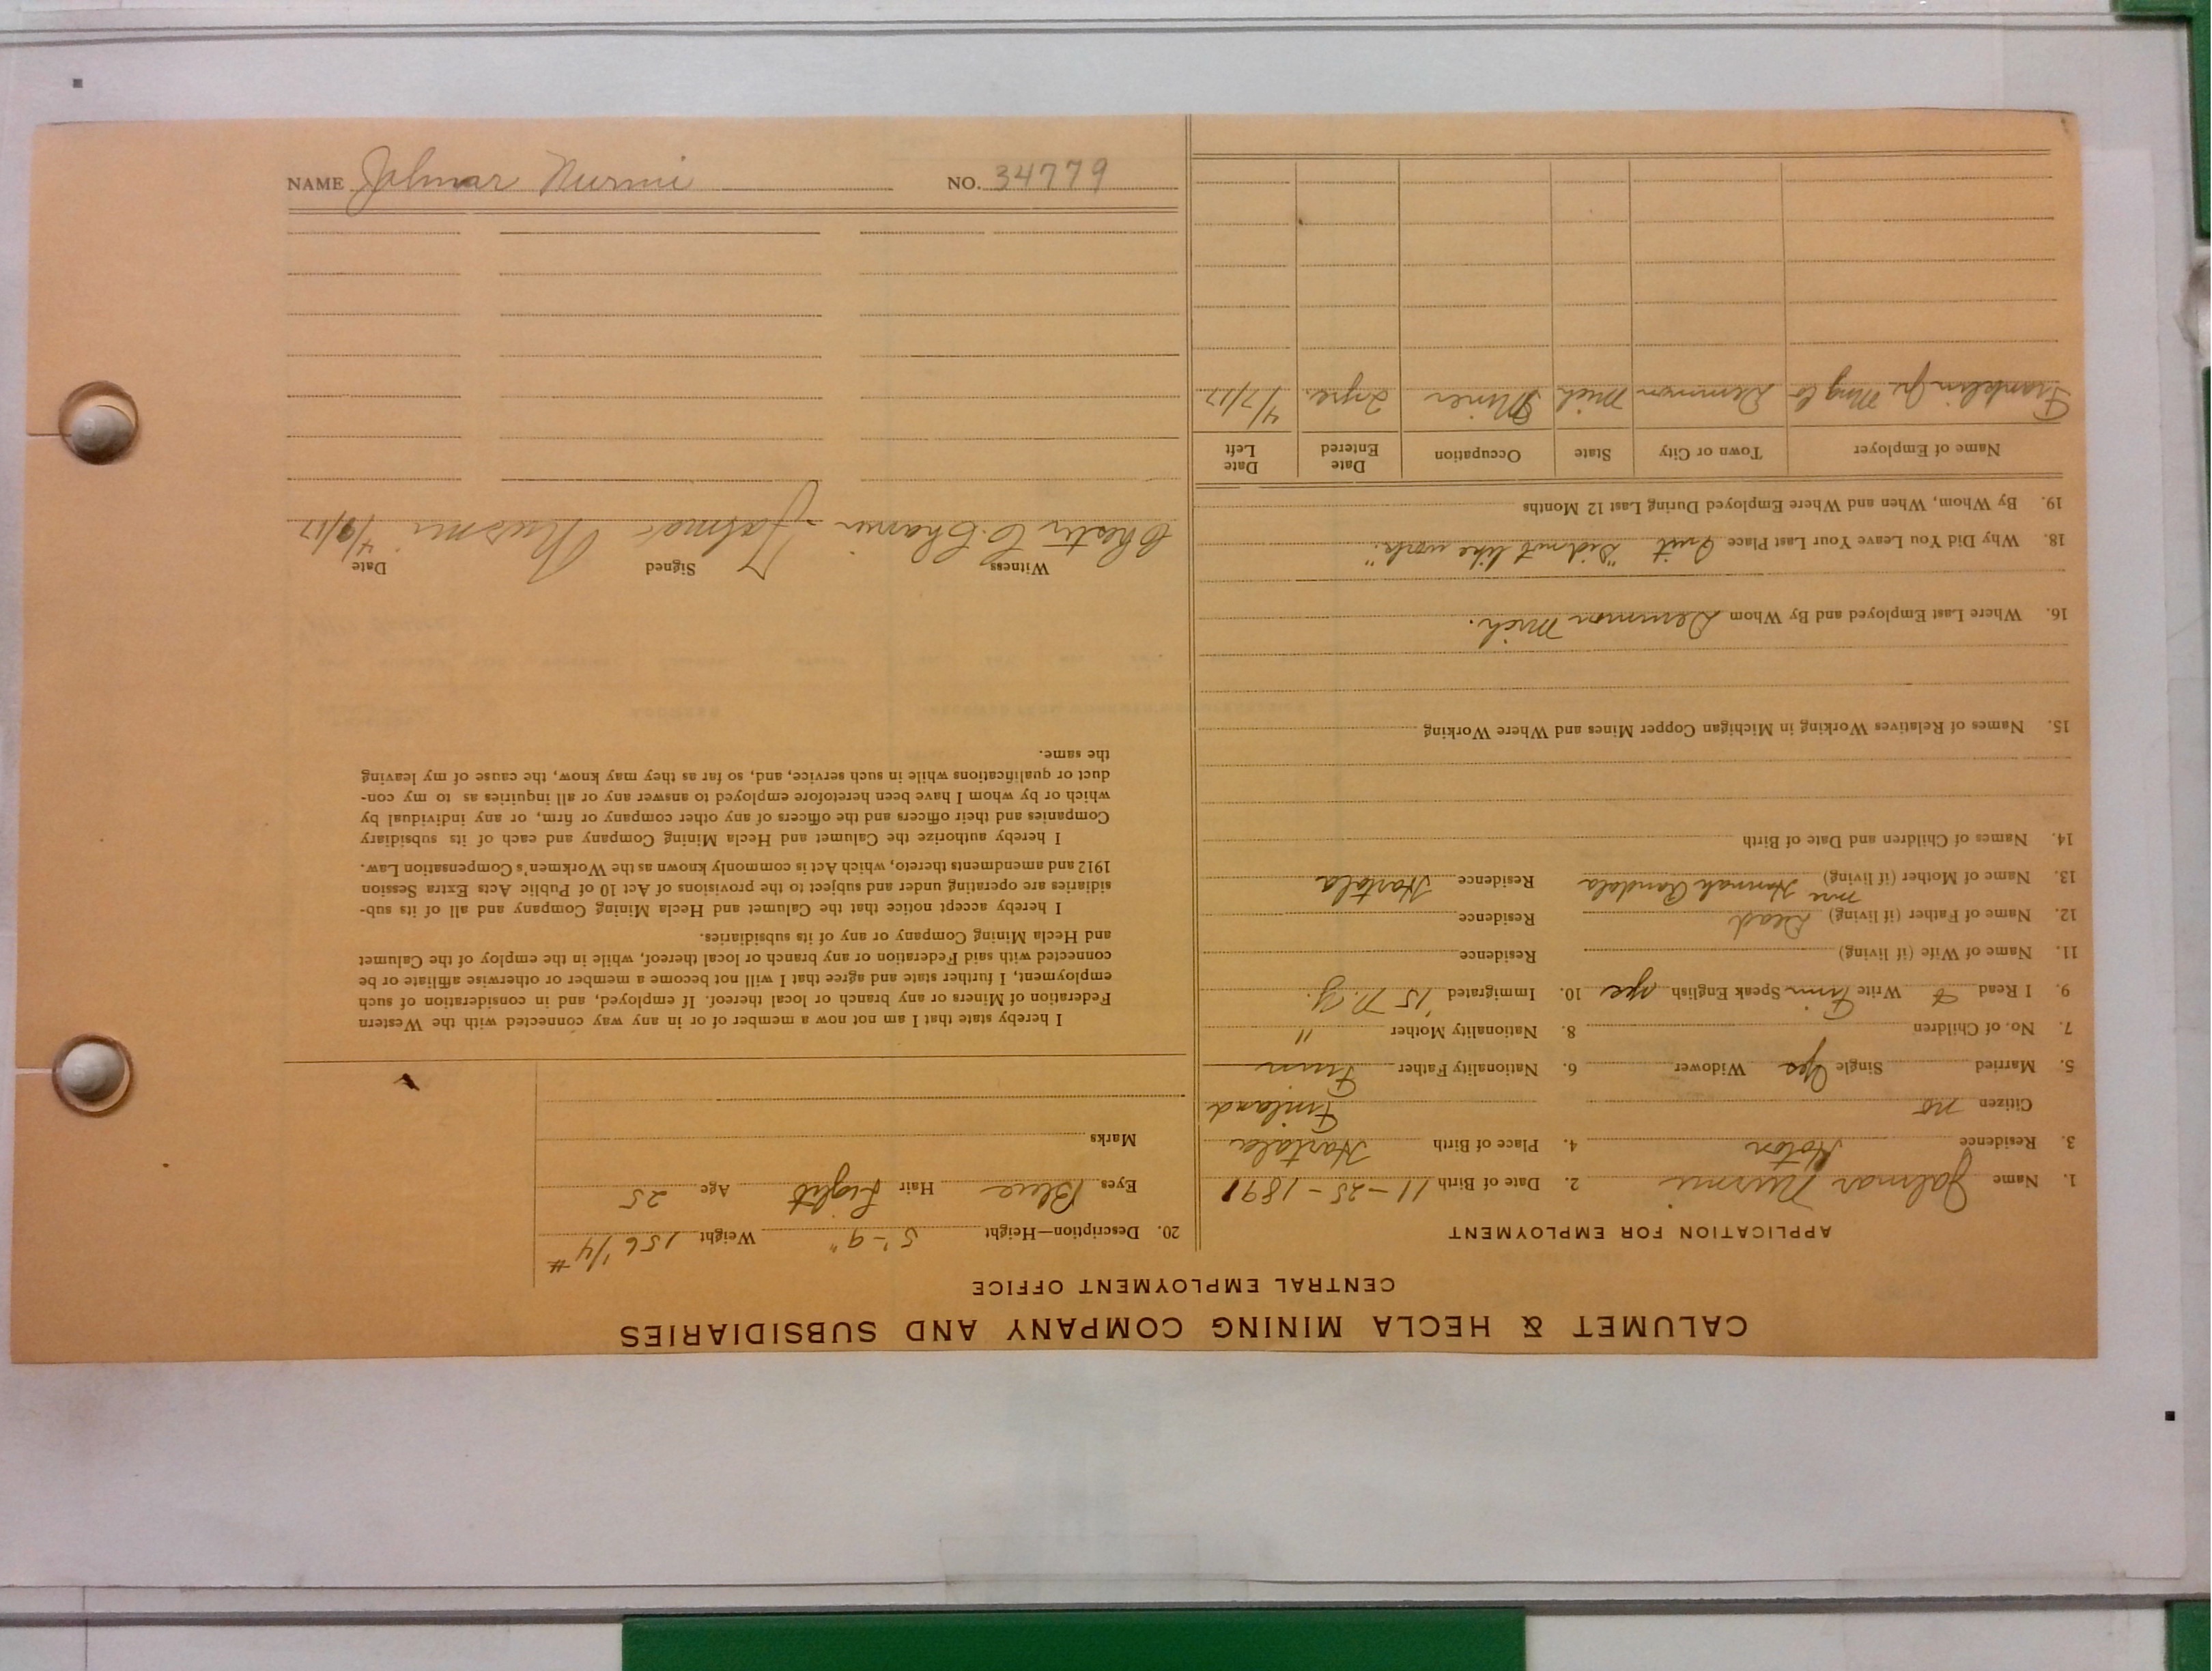 CALUMET & HECLA MINING COMPANY AND SUBSIDIARIES
CENTRAL EMPLOYMENT OFFICE
APPLICATION FOR EMPLOYMENT
1. Name Jalmar Nurmi 2. Date of Birth 11-25-1891
3. Residence Hoton 4. Place of Birth Hartala
Citizen no Finland
5. Married Single yes Widower 6. Nationality Father Finn
7. No. of Children 8. Nationality Mother "
9. I Read & Write Finn Speak English yes 10. Immigrated '15 N.Y.
11. Name of Wife (if living) Residence
12. Name of Father (if living) Dead Residence
13. Name of Mother (if living) Mrs Hannah Residence Hartala
14. Names of Children and Date of Birth
15. Names of Relatives Working in Michigan Copper Mines and Where Working
16. Where Last Employed and By Whom Demmon Mich.
18. Why Did You Leave Your Last Place Quit "Did not like work."
19. By Whom, When and Where Employed During Last 12 Months
Name of Employer Town or City State Occupation Date Entered Date Left
Franklin Jr. Mng Co Demmon Mich Miner 2 yrs. 4/7/17
20. Description—Height 5'-9" Weight 156 1/4#
Eyes Blue Hair Light Age 25
Marks
I hereby state that I am not now a member of or in any way connected with the Western
Federation of Miners or any branch or local thereof. If employed, and in consideration of such
employment, I further state and agree that I will not become a member or otherwise affiliate or be
connected with said Federation or any branch or local thereof, while in the employ of the Calumet
and Hecla Mining Company or any of its subsidiaries.
I hereby accept notice that the Calumet and Hecla Mining Company and all of its sub-
sidiaries are operating under and subject to the provisions of Act 10 of Public Acts Extra Session
1912 and amendments thereto, which Act is commonly known as the Workmen's Compensation Law.
I hereby authorize the Calumet and Hecla Mining Company and each of its subsidiary
Companies and their officers and the officers of any other company or firm, or any individual by
which or by whom I have been heretofore employed to answer any or all inquiries as to my con-
duct or qualifications while in such service, and, so far as they may know, the cause of my leaving
the same.
Witness Signed Date
Chester C. Jalmar Nurmi 4/9/17
NAME Jalmar Nurmi NO. 34779